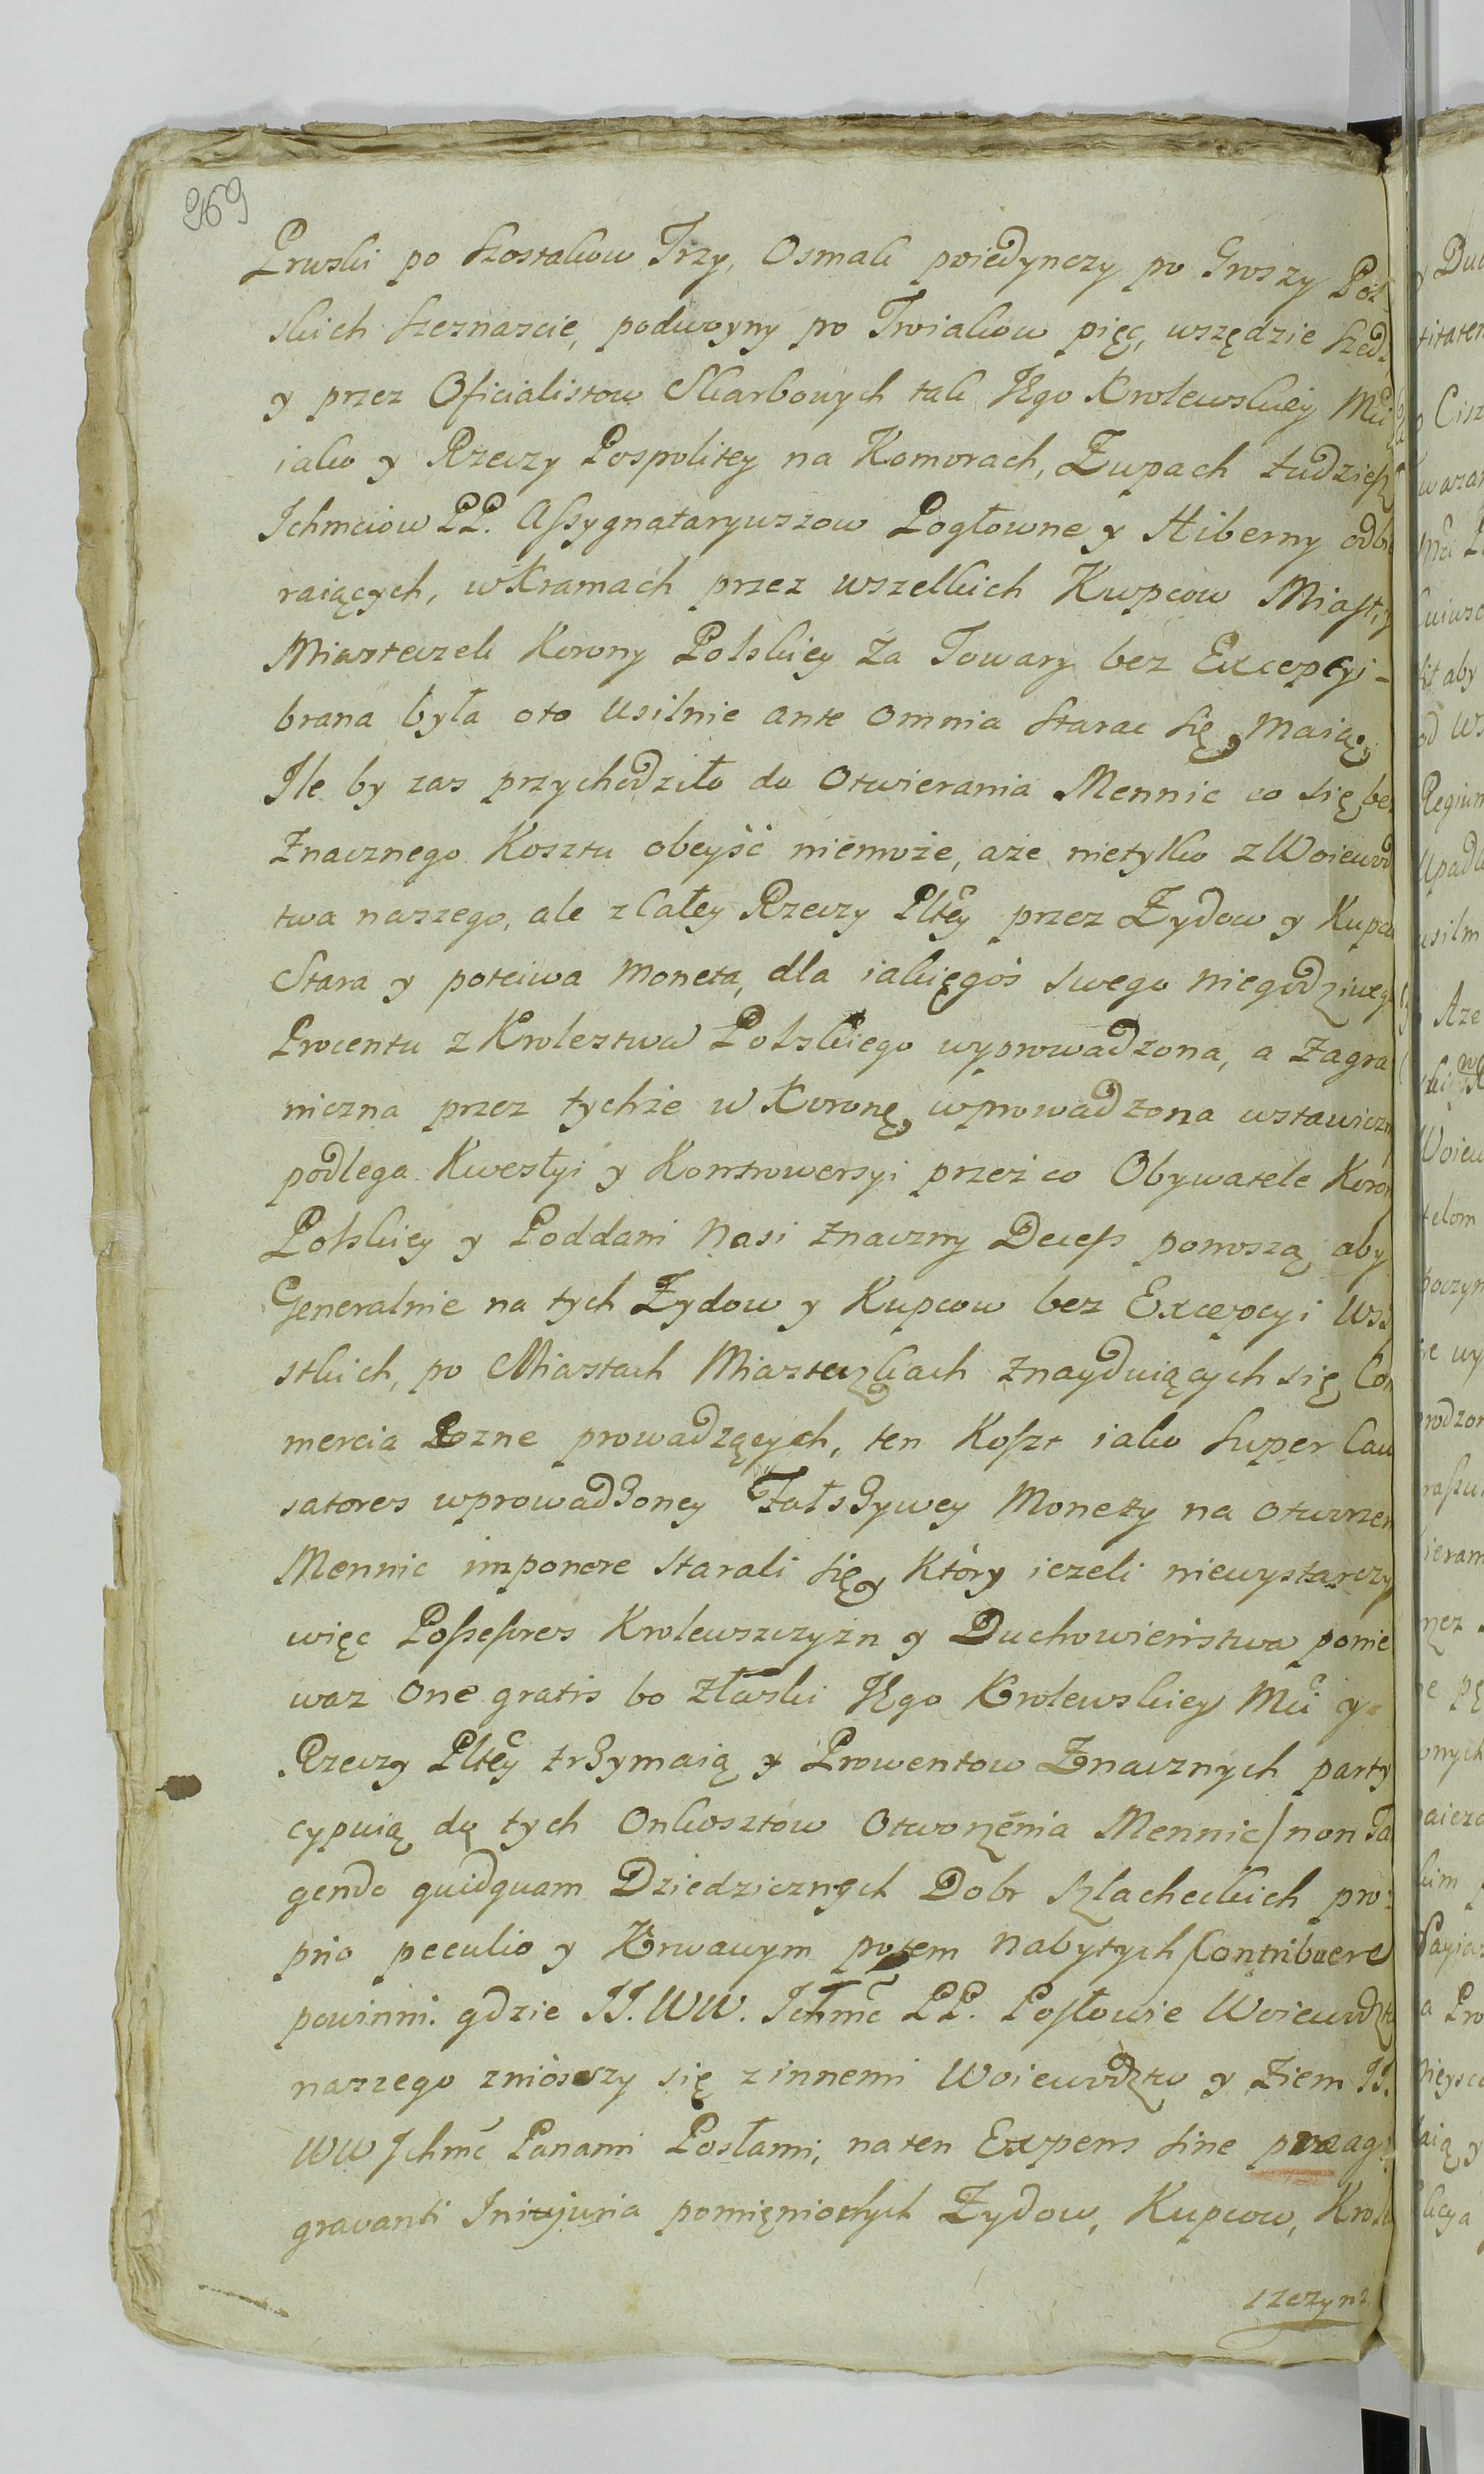 269
Pruski po szostakow Trzy, Osmak poiedynczy po Groszy Pol
skich szesnascie, podwoyny po Troiakow pięc, wszędzie szedł
y przez Oficialistow Skarbowych tak JKgo Krolewskiey Mci
iako y Rzeczy Pospolitey na Komorach, Żupach tudziesz
Ichmciow PP. Assygnataryuszow Pogłowne y Hiberny odbie
raiących, w Kramach przez wszelkich Kupcow Miast, y
Miasteczek Korony Polskiey za Towary bez Excepcyi
brana była oto usilnie ante omnia starac się Maią,
Ile by zas przychodziło do Otwierania Mennic co się bez
Znacznego Kosztu obeyść niemoże, aże nietylko z Woiewod
twa naszego, ale z Całey Rzeczy Pltey przez Żydow y Kupcow
Stara y poczciwa moneta, dla iakięgoś swego niegodziwego
Procentu z Krolestwa Polskiego wyprowadzona, a Zagra
niczna przez tychże w Koronę wprowadzona ustawiczn
podlega Kwestyi y Kontrowersyi przeż co Obywatele Koron
Polskiey y Poddani Nasi znaczny Decess ponoszą aby
Generalnie na tych Żydow y Kupcow bez Excepcyi Wsz
stkich, po Miastach Miasteczkach znayduiących się Com
mercia Rozne prowadzących, ten Koszt iako super Cau
satores wprowadzoney Fałszywey Monety na otworzen
Mennic imponere starali się, Który ieżeli niewystarczy
więc Possessores Krolewszczyżn y Duchowieństwa ponie
waz one gratis bo z łaski JKgo Krolewskiey Mci y
Rzeczy Pltey trzymaią y Prowentow Znacznych party
cypuią do tych Onkosztow Otworzenia Mennic / non Ta
gendo quidquam Dziedzicznych Dobr szlacheckich pro
prio peculio y Krwawym potem nabytych / Contribuere
powinni. gdzie JJ. WW. Ichmc PP. Posłowie Woiewodztw
naszego zniosszy się z innemi Woiewodztw y Ziem JJ.
WW Ichmc Panami Posłami, na ten Expens sine praeag
gravanti Iniujuria pomięnionych Żydow, Kupcow, Krole
szczyzn